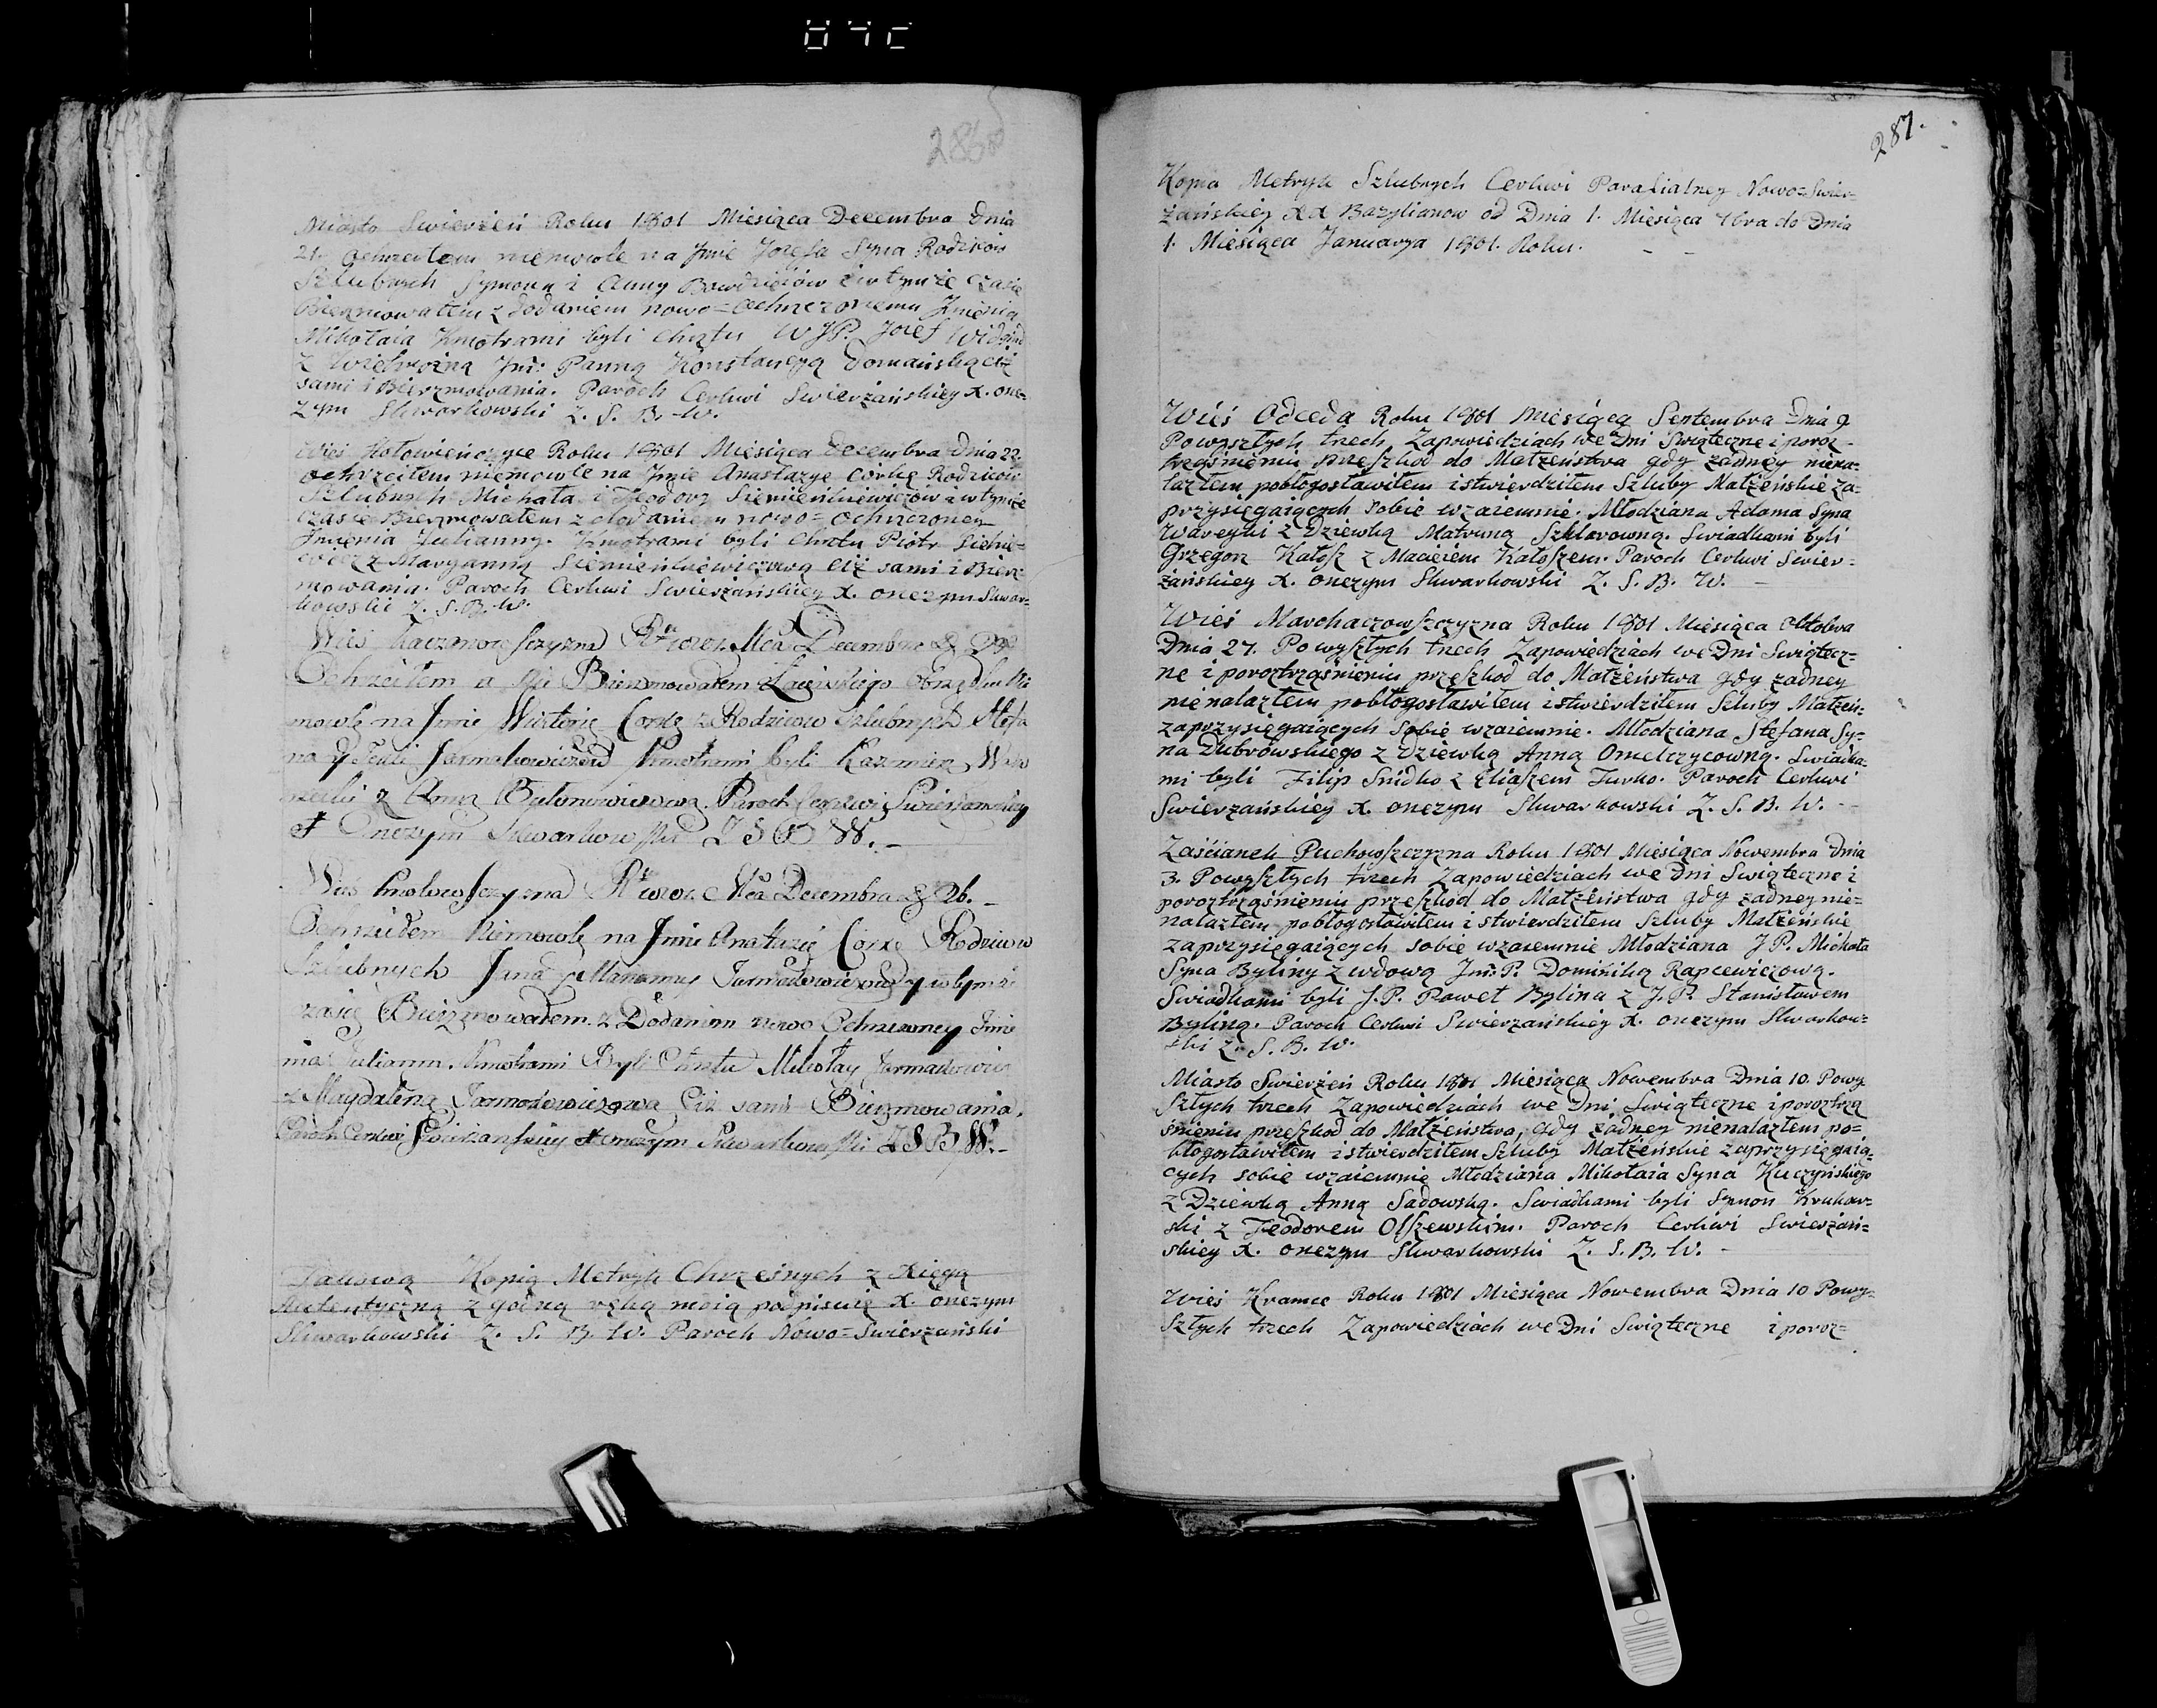 286
Miasto Swierżeń Roku 1801 Miesiąca Decembra Dnia
21. ochrzciłem niemowle na Jmie Jozefa Syna Rodzicow
Szlubnych Symona i Anny i w tymże czasie
Bierzmowałem z dodaniem nowo=ochrzczonemu Jmienia
Mikołaia Kmotrami byli chrztu WJP. Jozef
z Jm: Panną Konstancyą Domańską ciż
sami i Bierzmowania. Paroch Cerkwi Swierżańskiey X. one=
zym Skwarkowski Z. S. B. W.
Wieś Hotowieńczyce Roku 1801 Miesiąca Decembra Dnia 22.
ochrzciłem niemowle na Jmie Anastazye Córkę Rodzicow
Szlubnych Michała i Teodory Siemieńkiewiczów i w tymże
czasie Bierzmowałem z dodaniem nowo=ochrzczoney
Jmienia Julianny. Kmotrami byli chrztu Piotr
z Maryanną Siemieńkiewiczową ciż sami i Bierz=
mowania. Paroch Cerkwi Swierżańskiey X. onezym Skwar=
kowski Z. S. B. W.
Wieś Kaczanowszczyzna Rku 1801. Mca Decembra D.
Ochrzciłem a Bierzmowałem Obrządku Nie
mowlę na Jmie Wiktorię Corkę z Rodzicow Szlubnych Stefa
na y Tekli Jarmakowiczow Kmotrami byli Kazimierz
z Anną Paroch Cerkwi Swierżanskiey
X Onezym Skwarkowski Z S B W. _
Wieś Rku 1801. Mca Decembra D 26. _
Ochrzciłem Niemowlę na Jmie Anastazię Corkę Rodzicow
Szlubnych Jana y Marianny Jarmakowiczow y w tymże
czasię Bierzmowałem z Dodaniem nowo Ochrzconey Jmie
nia Juliann. Kmotrami Byli Chrztu Mikołay Jarmakowicz
z Magdaleną Jarmakowiczową Ciż sami Bierzmowania.
Paroch Cerkwi Swierżanskiey X Onezym Skwarkowski Z S B W. _
Takową Kopią Metryk Chrzesnych z Xięgą
Autentyczną zgodną ręką moią podpisuię X. onezym
Skwarkowski Z. S. B. W. Paroch Nowo=Swierżański
287.
Kopia Metryk Szlubnych Cerkwi Parafialney Nowo=Swier=
żańskiey XX Bazylianow od Dnia 1. Miesiąca 7bra do Dnia
1. Miesiąca Januarya 1801. Roku. - -
Wieś Odceda Roku 1801 Miesiąca Septembra Dnia 9
Powyszłych trzech Zapowiedziach we Dni Swiąteczne i poroz=
trząśnieniu przeszkod do Małżeństwa gdy żadney niena=
lazłem pobłogosławiłem i stwierdziłem Szluby Małżeńskie za=
przysięgaiących sobie wzaiemnie. Młodziana Adama Syna
Wareyki z Dziewką Matruną Szklarowną. Swiadkami byli
Grzegorz Kałosz z Macieiem Kałoszem. Paroch Cerkwi Swier=
żańskiey X. onezym Skwarkowski Z. S. B. W. -
Wieś Marchaczowszczyzna Roku 1801 Miesiąca oktobra
Dnia 27. Powyszłych trzech Zapowiedziach we Dni Swiątecz=
ne i poroztrząśnieniu przeszkod do Małżeństwa gdy żadney
nienalazłem pobłogosławiłem i stwierdziłem Szluby Małżeń=
zaprzysięgaiących sobie wzaiemnie. Młodziana Stefana Sy=
na Dubrowskiego z Dziewką Anną Omelczycowną. Swiadka=
mi byli Filip Snidko z Eliaszem Turko. Paroch Cerkwi
Swierżańskiey X. onezym Skwarkowski Z. S. B. W. - -
Zaścianek Puchowszczyzna Roku 1801 Miesiąca Nowembra Dnia
3. Powyszłych trzech Zapowiedziach we Dni Swiąteczne i
poroztrząśnieniu przeszkod do Małżeństwa gdy żadney nie=
nalazłem pobłogosławiłem i stwierdziłem Szluby Małżeńskie
zaprzysięgaiących sobie wzaiemnie Młodziana J P. Michała
Syna Byliny z wdową Jm: P. Dominiką Rapcewiczową.
Swiadkami byli J. P. Paweł Bylina z J. P. Stanisławem
Byliną. Paroch Cerkwi Swierżańskiey X. onezym Skwarkow=
ski Z. S. B. W.
Miasto Swierżeń Roku 1801 Miesiąca Nowembra Dnia 10. Powy
szłych trzech Zapowiedziach we Dni Swiąteczne i poroztrzą
śnieniu przeszkod do Małżeństwa, gdy żadney nienalazłem po=
błogosławiłem i stwierdziłem Szluby Małżeńskie zaprzysięgaią=
cych sobie wzaiemnie Młodziana Mikołaia Syna Kuczyńskiego
z Dziewką Anną Sadowską. Swiadkami byli Symon Krukow=
ski z Teodorem Olszewskim. Paroch Cerkwi Swierżań=
skiey X. onezym Skwarkowski Z. S. B. W. -
Wieś Kramce Roku 1801 Miesiąca Nowembra Dnia 10 Powy=
szłych trzech Zapowiedziach we Dni Swiąteczne i poroz=